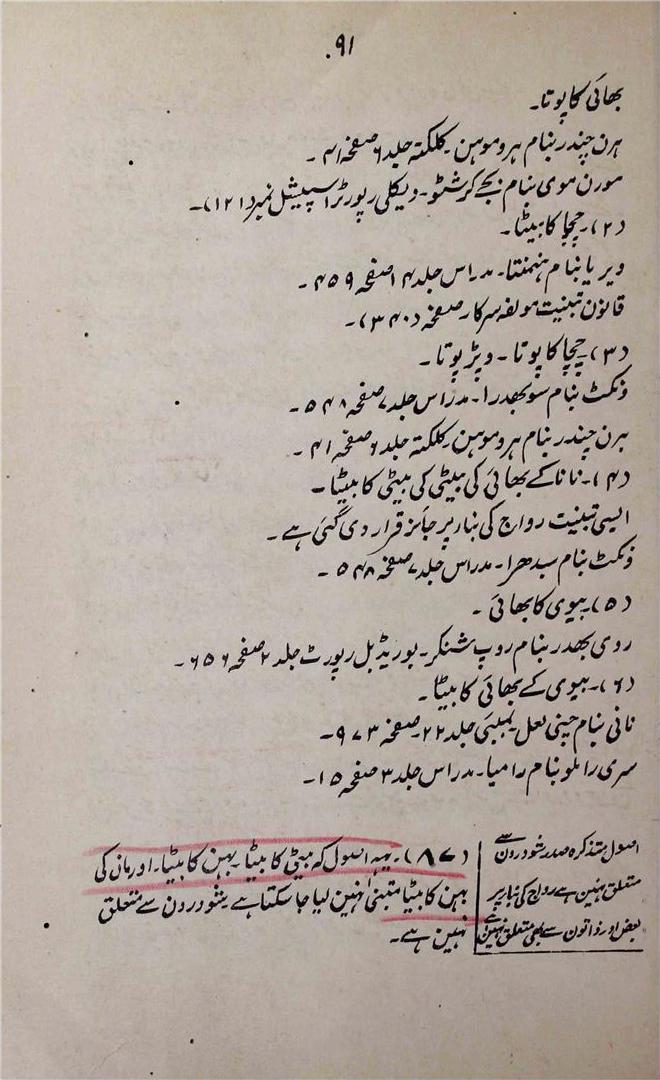 ۹۱
بھائی کا پوتا۔
ہرن چندر بنام ہروموہن۔ کلکتہ جلد ۶ صفحہ ۴۱۔
مورن موی بنام بجے کرشٹو۔ ویکلی رپورٹر اسپیشل نمبر (۱۲۱)۔
(۲)۔ چچا کا بیٹا۔
ویریا بنام ہنمنتا۔ مدراس جلد ۱۴ صفحہ ۴۵۹۔
قانون تبنیت مولفہ سرکار صفحہ (۳۴۰)۔
(۳)۔ چچا کا پوتا۔ و پڑپوتا۔
ونکٹ بنام سوبھدرا۔ مدراس جلد ۷ صفحہ ۵۴۸۔
ہرن چندر بنام ہروموہن۔ کلکتہ جلد ۶ صفحہ ۴۱۔
(۴)۔ نانا کے بھائی کی بیٹی کی بیٹی کا بیٹا۔
ایسی تبنیت رواج کی بناء پر جائز قرار دی گئی ہے۔
ونکٹ بنام سبدھرا۔ مدراس جلد ۷ صفحہ ۵۴۸۔
(۵)۔ بیوی کا بھائی۔
روی بھدر بنام روپ شنکر۔ بوریڈیل رپورٹ جلد ۲ صفحہ ۶۵۶۔
(۶)۔ بیوی کے بھائی کا بیٹا۔
نانی بنام چنی لعل بمبئی جلد ۲۲۔ صفحہ ۹۷۳۔
سری راملو بنام رامیا۔ مدراس جلد ۳ صفحہ ۱۵۔
اصول متذکرہ صدر شودرون سے
متعلق نہین ہے رواج کی بنا پر
بعض اور ذاتون سے بھی متعلق نہین ہے
(۸۷)۔ یہہ اصول کہ بیٹی کا بیٹا۔ بہن کا بیٹا۔ اور مان کی
بہن کا بیٹا متبنیٰ نہین لیا جا سکتا ہے شودرون سے متعلق
نہین ہے۔